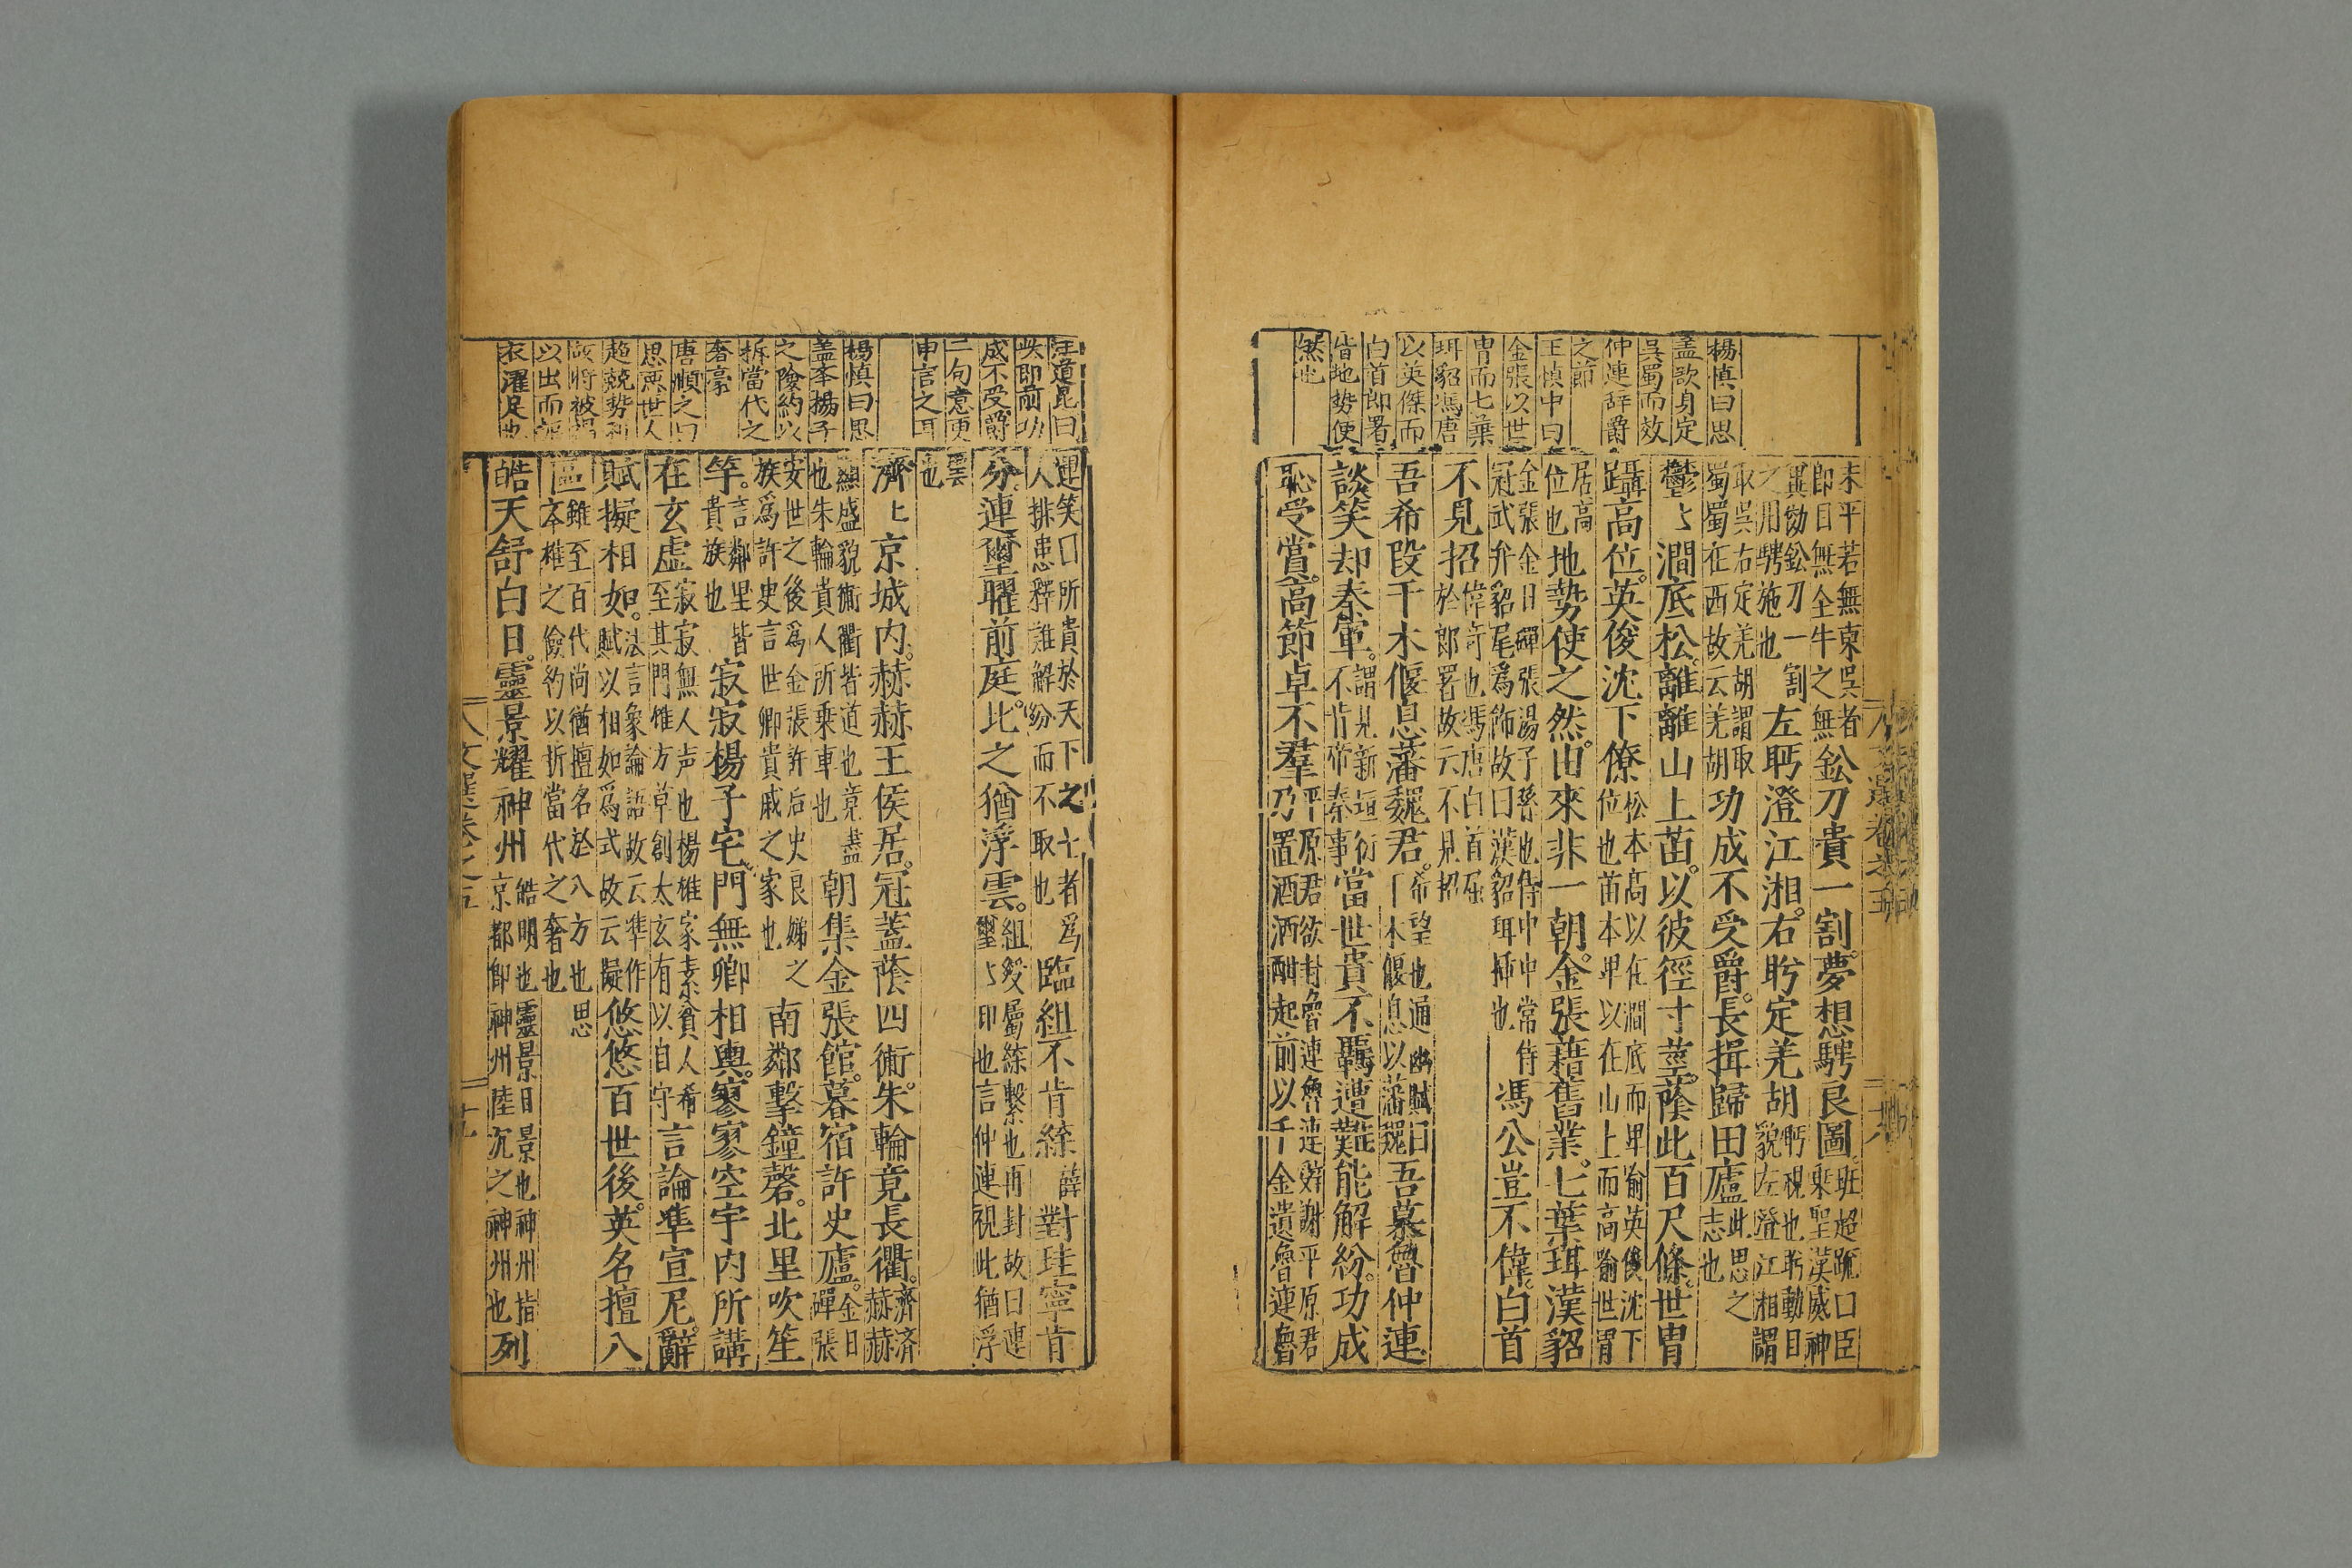 楊慎曰思
蓋歌身定
吳蜀而效
仲連辞爵
之節
王慎中曰
金張以世
胄而七葉
珥貂馮唐
以英傑而
白首郎署
皆地勢使
然也
未平若無東吳者
即目無全牛之無
鈆刀貴一割夢想騁良圖
班超䟽曰臣
乘聖漢威神
異効鈆刀一割
之用騁施也
左眄澄江湘右盻定羌胡
眄視也盻動目
貌左澄江湘謂
取吳右定羌胡謂取
蜀蜀在西故云羌胡
功成不受爵長揖歸田廬
此思之
志也
鬱〻澗底松離離山上苗以彼徑寸莖蔭此百尺條世胄
躡高位英俊沈下僚
松本高以在澗底而卑喻英俊沈下
位也苗本卑以在山上而高喻世胄
居高
位也
地勢使之然由來非一朝金張藉舊業七葉珥漢貂
金張金日磾張湯子孫也侍中中常侍
冠武弁貂尾為飾故曰漢貂珥插也
馮公豈不偉白首
不見招
偉奇也馮唐白首屈
於郎署故云不見招
吾希段干木偃息藩魏君
希望也通幽賦曰
干木偃息以藩魏
吾慕魯仲連
談笑却秦軍
謂見新垣衍
不肯帝秦事
當世貴不羈遭難能解紛功成
恥受賞高節卓不羣
平原君欲封魯連魯連辭謝平原君
乃置酒酒酣起前以千金遺魯連魯
汪道昆曰
此即前功
成不受爵
二句意更
申言之耳
楊慎曰思
蓋夲揚子
之險約以
拆當代之
奢豪
唐順之曰
思悪世人
趨競勢利
以出而
衣濯足也
連笑曰所貴於天下之士者為
人排患釋難解紛而不取也
臨組不肯緤
對珪寧肯
分連璽曜前庭比之猶浮雲
組綬屬緤繫也再封故曰連
璽〻印也言仲連視此猶浮
雲
也
濟〻京城内赫赫王侯居冠蓋蔭四術朱輪竟長衢
濟濟
赫赫
顯盛貌術衢皆道也竟盡
也朱輪貴人所乘車也
朝集金張館暮宿許史廬
金日
磾張
安世之後為金張許后史良娣之
族為許史言世卿貴戚之家也
南鄰擊鐘磬北里吹笙
竽
言鄰里皆
貴族也
寂寂楊子宅門無卿相輿寥寥空宇内所講
在玄虛
寂寂無人声也楊雄家素貧人希
至其門惟方草創太玄有以自守
言論準宣尼辭
賦擬相如
法言象論語故云準作
賦以相如為式故云擬
悠悠百世後英名擅八
區
雖至百代尚猶擅名於八方也思
夲雄之儉約以折當代之奢也
皓天舒白日靈景耀神州
皓明也靈景日景也神州指
京都即神州陸沉之神州也
列